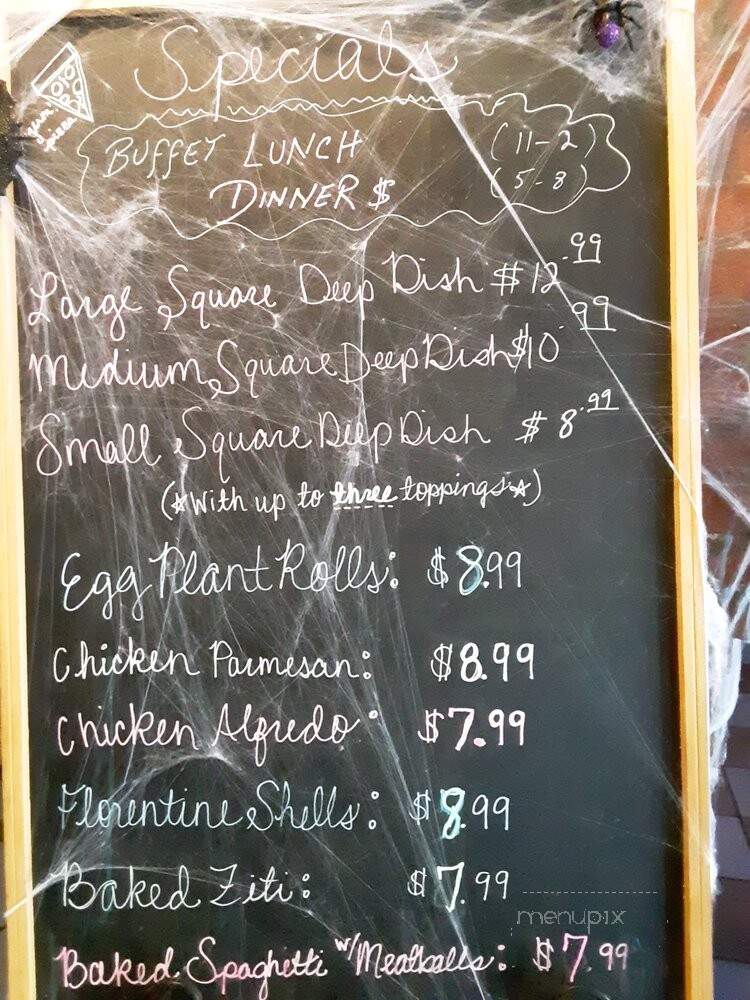 Specials
yum!
pizza
BUFFET LUNCH (11-2)
DINNER $ (5-8)
Large Square Deep Dish $12.99
Medium Square Deep Dish $10.99
Small Square Deep Dish $8.99
(*With up to three toppings*)
Egg Plant Rolls: $8.99
Chicken Parmesan: $8.99
Chicken Alfredo: $7.99
Florentine Shells: $8.99
Baked Ziti: $7.99
menupix
Baked Spaghetti w/Meatballs: $7.99